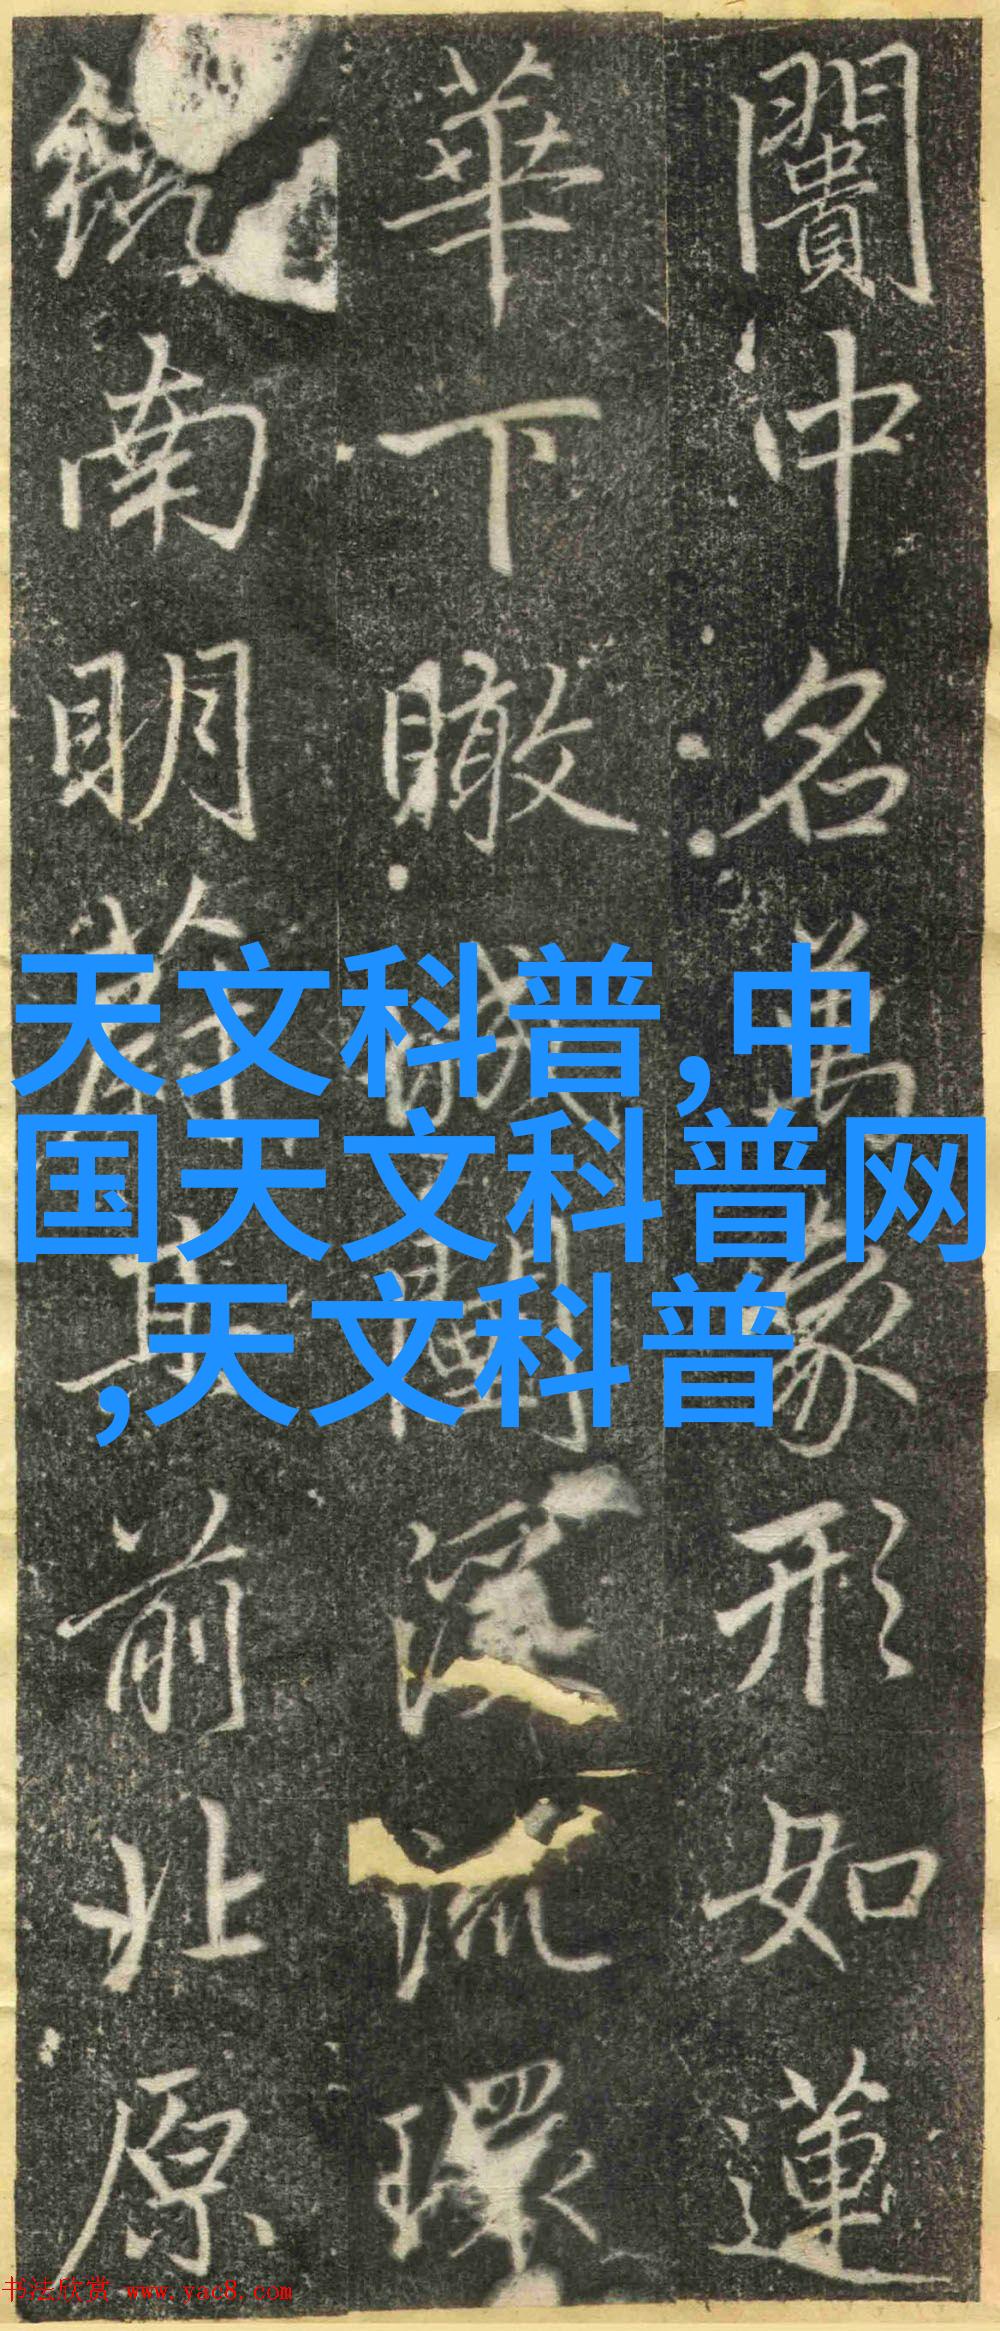 闠中名萬象形如蓮
華下瞰城闉深流環
南明蔚其前北原
天文科普,中
国天文科普网
,天文科普
书法欣赏 www.yac8.com